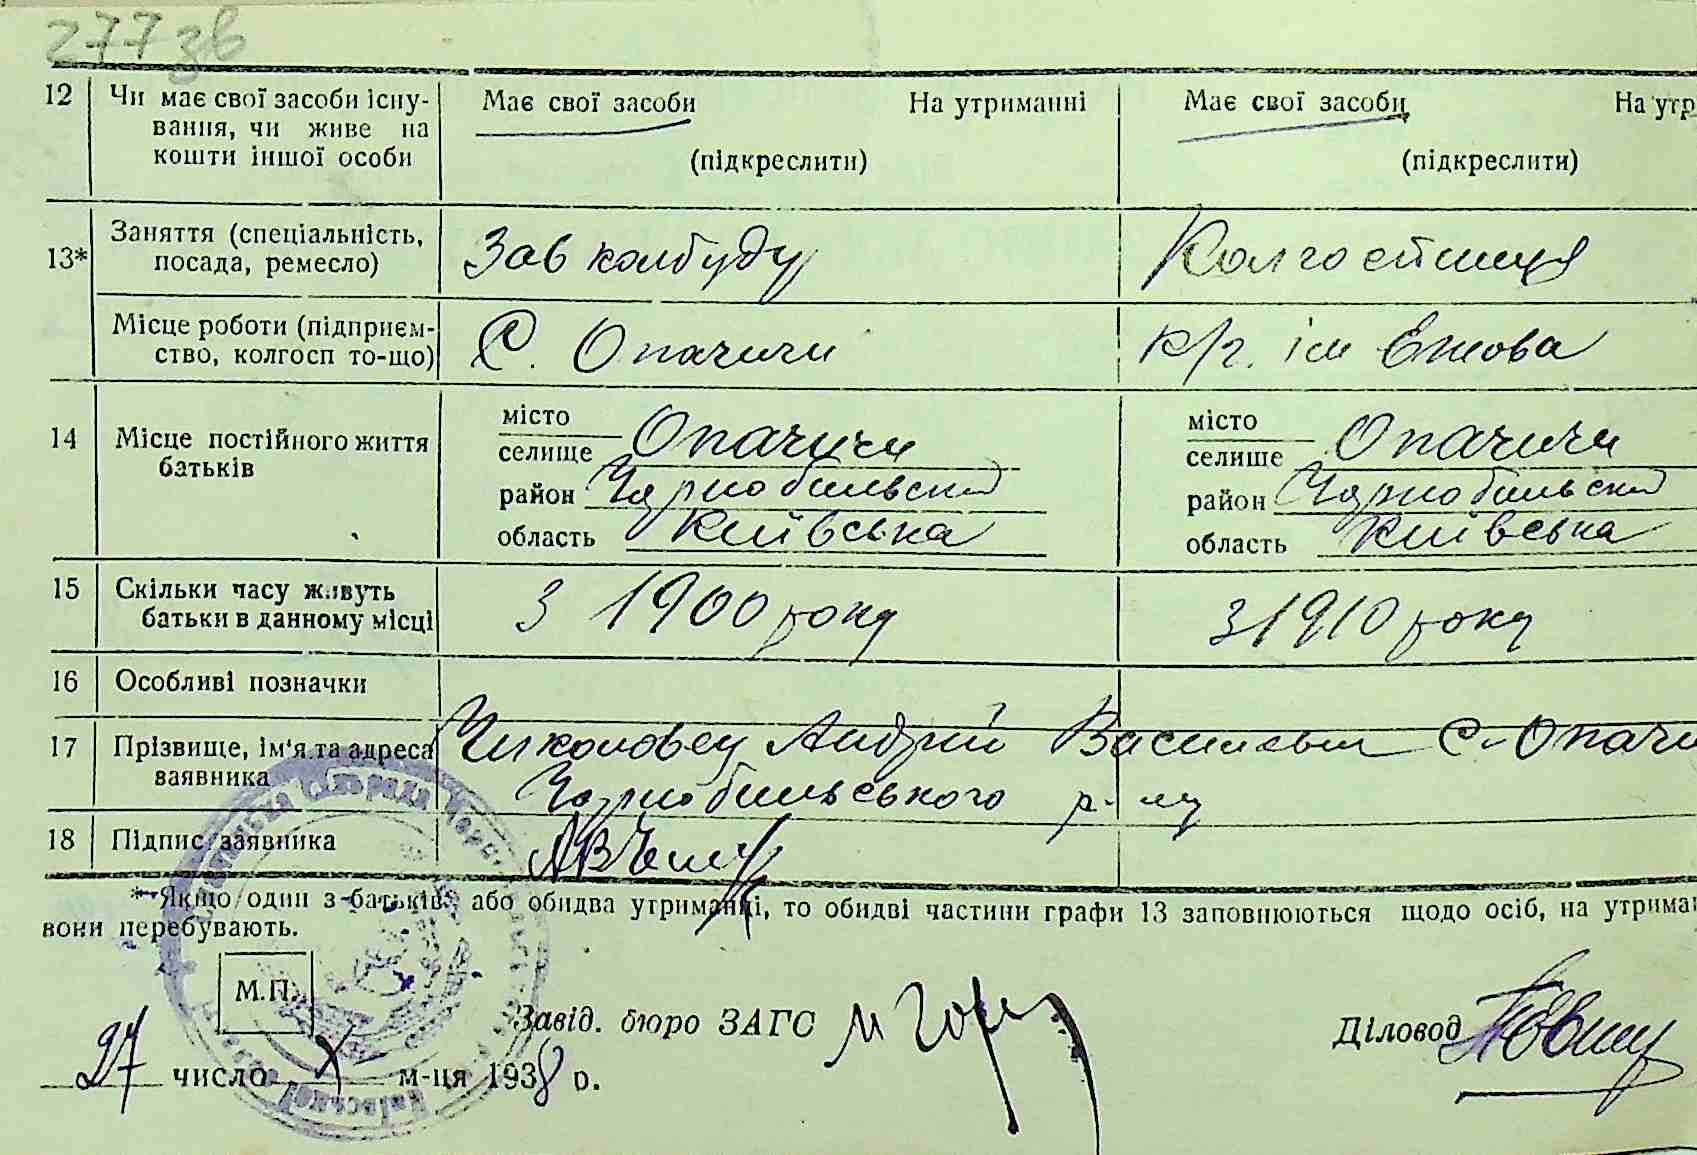 277 зв
12 Чи має свої засоби існу- Має свої засоби На утриманні Має свої засоби На утр
вання, чи живе на
кошти іншої особи (підкреслити) (підкреслити)
13* Заняття (спеціальність, посада, ремесло) Зав колбуду Колгоспниця
Місце роботи (підприєм-
ство, колгосп то-що) С. Опачичи к/г. ім Єжова
14 Місце постійного життя
батьків
місто
селище Опачичи
район Чорнобильський
область Київська
місто
селище Опачичи
район Чорнобильський
область Київська
15 Скільки часу живуть
батьки в данному місці З 1900 року З 1910 року
16 Особливі позначки
17 Прізвище, ім'я та адреса Андрій Васильевич С. Опачи
заявника Чорнобильського р-ну
18 Підпис заявника
* Якщо один з батьків, або обидва утриманці, то обидві частини графи 13 заповнюються щодо осіб, на утриман
вони перебувають.
М.П.
Завід. бюро ЗАГС Діловод
27 число X м-ця 1938 р.